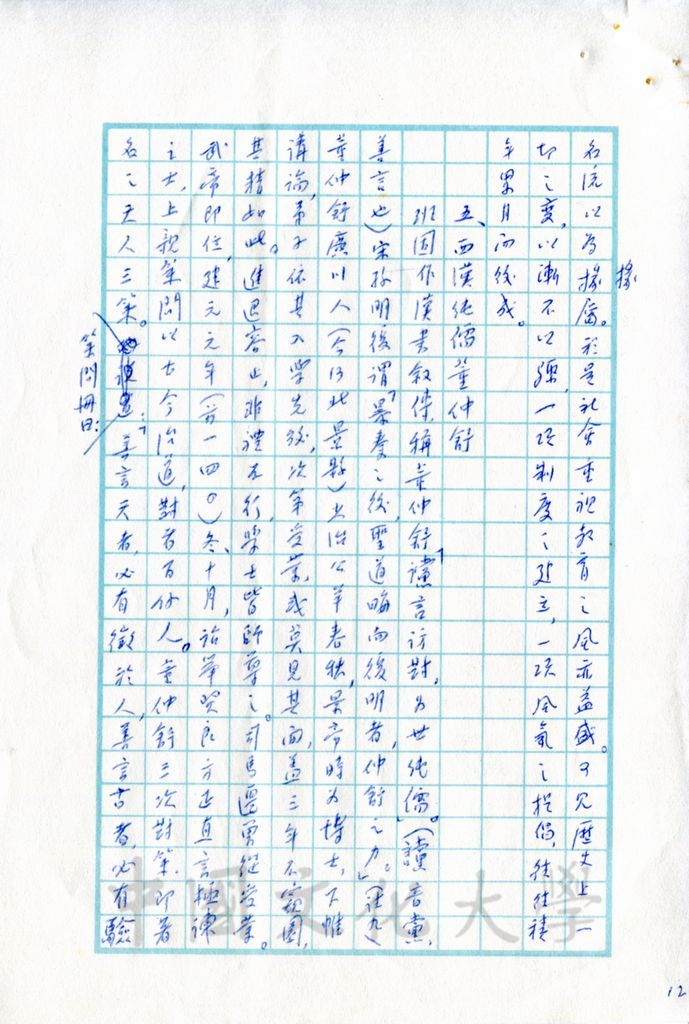 名流以為掾屬。於是社會重視教育之風亦益盛。可見歷史上一
掾
切之變,以漸不以驟,一項制度之建立,一項風氣之提倡,往往積
年累月而後成。
五、西漢純儒董仲舒
班固作漢書敘傳稱董仲舒「讜言訪對,為世純儒。」(讜音黨,
善言也)宋孫明復謂「暴秦之後,聖道晦而復明者,仲舒之力。」(註九)
董仲舒廣川人(今河北景縣)少治公羊春秋,景帝時為博士,下帷
講論,弟子依其入學先後,次第受業,或莫見其面,蓋三年不窺園,
其精如此。進退容止,非禮不行,學士皆師尊之。司馬遷曾從受業。
武帝即位,建元元年(前一四〇)冬、十月,詔舉賢良方正直言極諫
之士,上親策問以古今治道,對者百餘人。董仲舒三次對策,即著
名之天人三策。善言天者,必有徵於人,善言古者,必有驗
策問冊曰:
中國文化大學
12